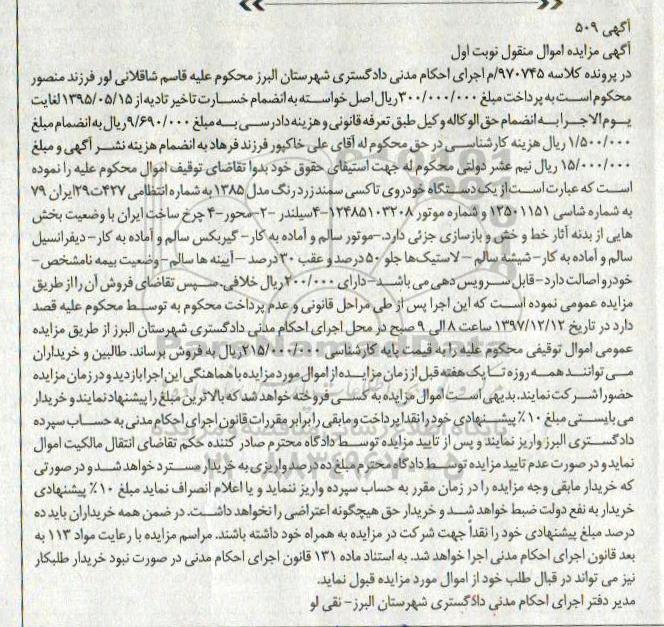 آگهی ۵۰۹
آگهی مزایده اموال منقول نوبت اول
در پرونده کلاسه ۹۷۰۷۴۵/م اجرای احکام مدنی دادگستری شهرستان البرز محکوم علیه قاسم شاقلانی لور فرزند منصور
محکوم است به پرداخت مبلغ ۳۰۰/۰۰۰/۰۰۰ ریال اصل خواسته به انضمام خسارت تاخیر تادیه از ۱۳۹۵/۰۵/۱۵ لغایت
یوم الاجرا به انضمام حق الوکاله وکیل طبق تعرفه قانونی و هزینه دادرسی به مبلغ ۹/۶۹۰/۰۰۰ ریال به انضمام مبلغ
۱/۵۰۰/۰۰۰ ریال هزینه کارشناسی در حق محکوم له آقای علی خاکپور فرزند فرهاد به انضمام هزینه نشر آگهی و مبلغ
۱۵/۰۰۰/۰۰۰ ریال نیم عشر دولتی محکوم له جهت استیفای حقوق خود بدوا تقاضای توقیف اموال محکوم علیه را نموده
است که عبارت است از یک دستگاه خودروی تاکسی سمند زرد رنگ مدل ۱۳۸۵ به شماره انتظامی ۴۲۷ت۲۹ ایران ۷۹
به شماره شاسی ۱۳۵۰۱۱۵۱ و شماره موتور ۱۲۴۸۵۱۰۳۲۰۸-۴سیلندر -۲-محور-۴ چرخ ساخت ایران با وضعیت بخش
هایی از بدنه آثار خط و خش و بازسازی جزئی دارد.-موتور سالم و آماده به کار- گیربکس سالم و آماده به کار-دیفرانسیل
سالم و آماده به کار-شیشه سالم - لاستیک‌ها جلو ۵۰ درصد و عقب ۳۰ درصد - آیینه ها سالم-وضعیت بیمه نامشخص-
خودرو اصالت دارد-قابل سرویس دهی می باشد-دارای ۲۰۰/۰۰۰ ریال خلافی.سپس تقاضای فروش آن را از طریق
مزایده عمومی نموده است که این اجرا پس از طی مراحل قانونی و عدم پرداخت محکوم به توسط محکوم علیه قصد
دارد در تاریخ ۱۳۹۷/۱۲/۱۲ ساعت ۸ الی ۹ صبح در محل اجرای احکام مدنی دادگستری شهرستان البرز از طریق مزایده
عمومی اموال توقیفی محکوم علیه را به قیمت پایه کارشناسی ۲۱۵/۰۰۰/۰۰۰ ریال به فروش برساند. طالبین و خریداران
می توانند همه روزه تا یک هفته قبل از زمان مزایده از اموال مورد مزایده با هماهنگی این اجرا بازدید و در زمان مزایده
حضور اشرکت نمایند. بدیهی است اموال مزایده به کسی فروخته خواهد شد که بالاترین مبلغ را پیشنهاد نمایند و خریدار
می بایستی مبلغ ۱۰٪ پیشنهادی خود را نقدا پرداخت و مابقی را برابر مقررات قانون اجرای احکام مدنی به حساب سپرده
دادگستری البرز واریز نمایند و پس از تایید مزایده توسط دادگاه محترم صادر کننده حکم تقاضای انتقال مالکیت اموال
نماید و در صورت عدم تایید مزایده توسط دادگاه محترم مبلغ ده درصد واریزی به خریدار مسترد خواهد شد و در صورتی
که خریدار مابقی وجه مزایده را در زمان مقرر به حساب سپرده واریز ننماید و یا اعلام انصراف نماید مبلغ ۱۰٪ پیشنهادی
خریدار به نفع دولت ضبط خواهد شد و خریدار حق هیچگونه اعتراضی را نخواهد داشت. در ضمن همه خریداران باید ده
درصد مبلغ پیشنهادی خود را نقداً جهت شرکت در مزایده به همراه خود داشته باشند. مراسم مزایده با رعایت مواد ۱۱۳ به
بعد قانون اجرای احکام مدنی اجرا خواهد شد. به استناد ماده ۱۳۱ قانون اجرای احکام مدنی در صورت نبود خریدار طلبکار
نیز می تواند در قبال طلب خود از اموال مورد مزایده قبول نماید.
مدیر دفتر اجرای احکام مدنی دادگستری شهرستان البرز- نقی لو
ParsNamadData